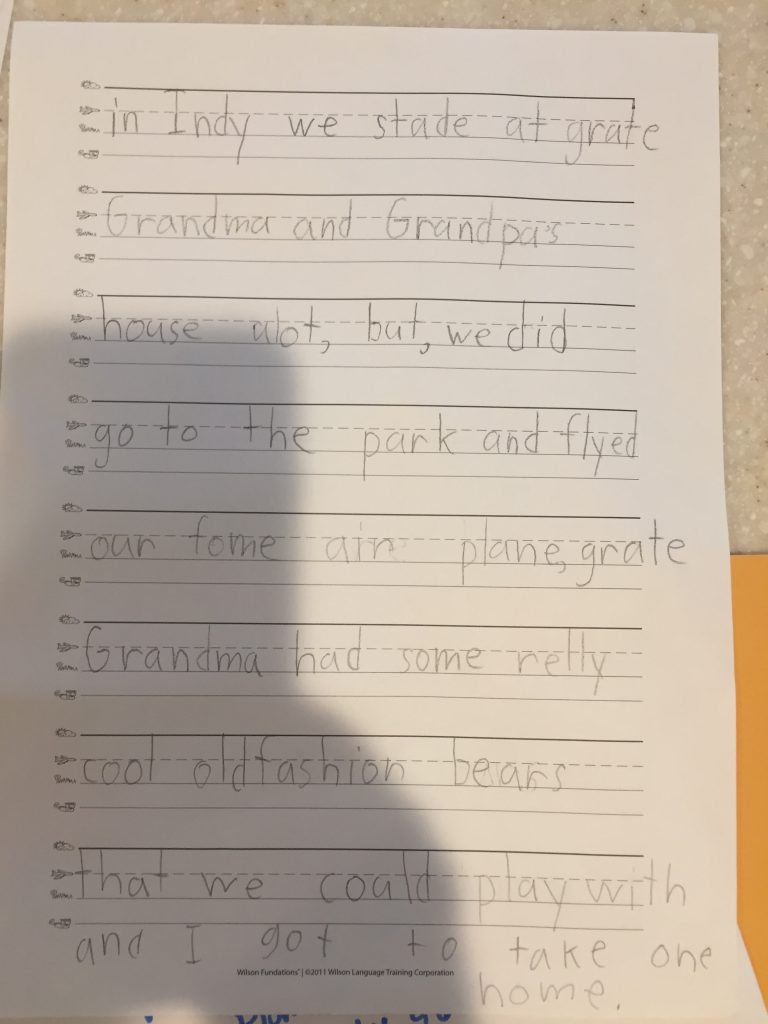 in Indy we stade at grate
Grandma and Grandpa's
house alot, but, we did
go to the park and flyed
our fome air plane, grate
Grandma had some relly
cool old fashion bears
that we could play with
and I got to take one
Wilson Fundations® | ©2011 Wilson Language Training Corporation
home.